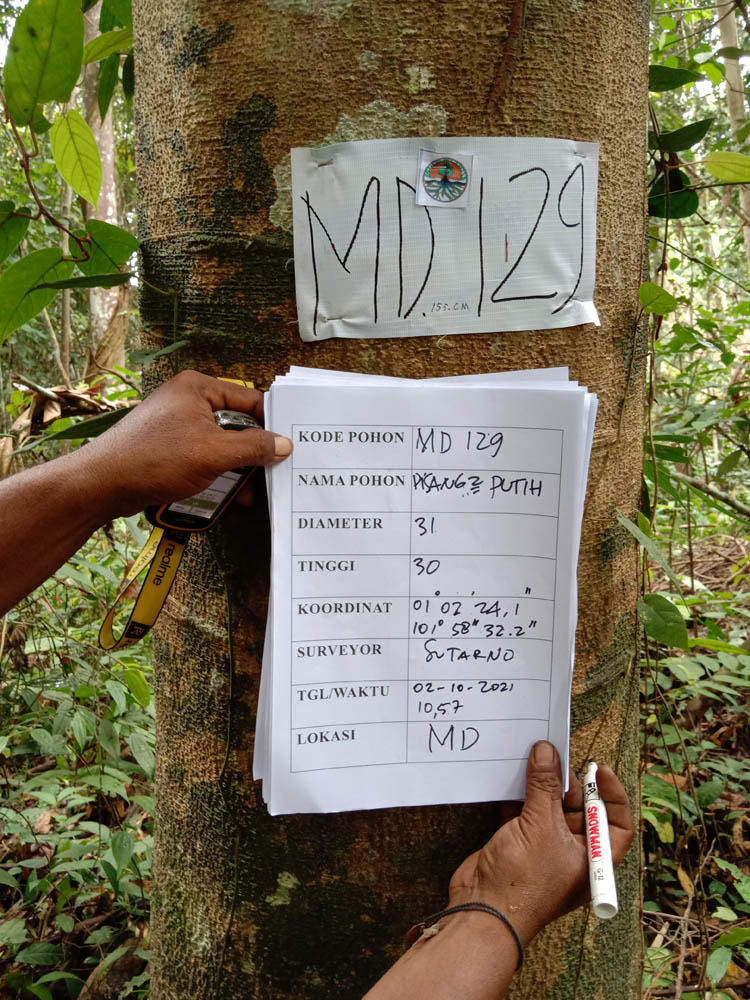 MD 129
155.CM
KODE POHON MD 129
NAMA POHON PUTIH
DIAMETER 31
TINGGI 30
KOORDINAT 01° 02' 24,1"
101° 58" 32.2"
SURVEYOR SUTARNO
TGL/WAKTU 02-10-2021
10,57
LOKASI MD
realme
SNOWMAN